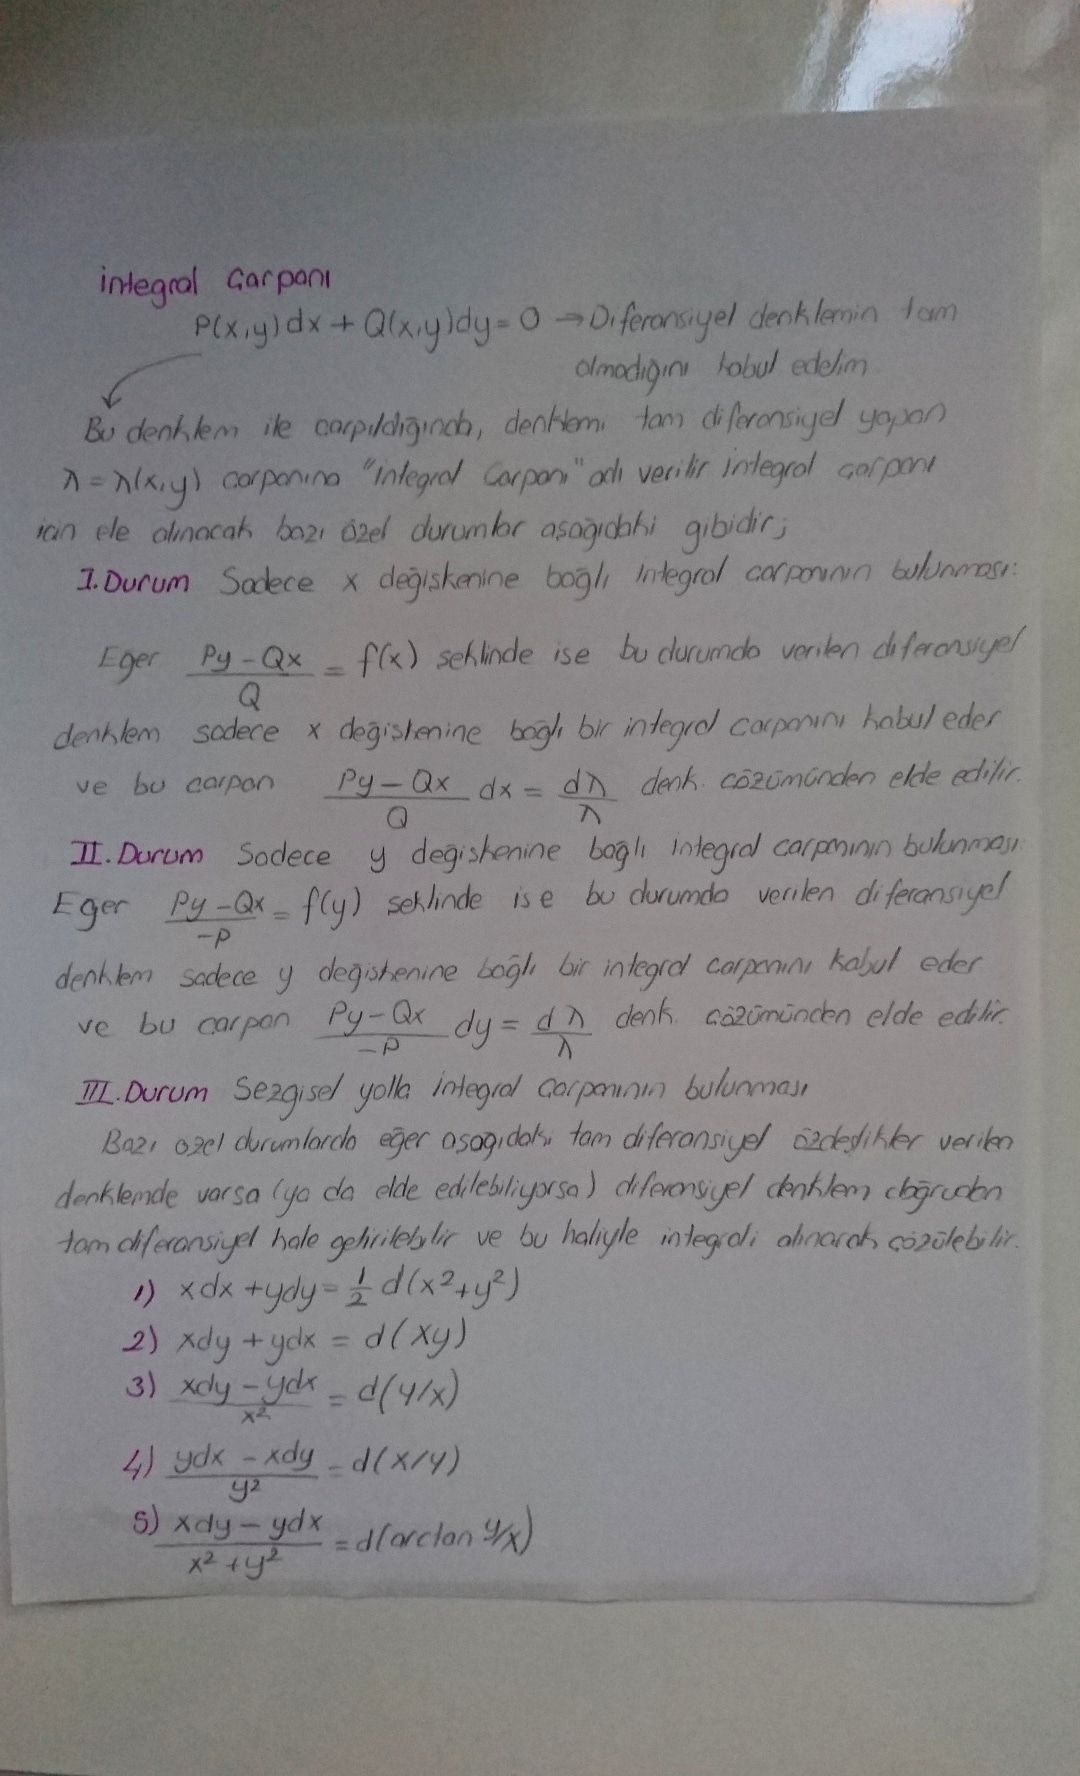 integral Çarpanı
P(x,y)dx + Q(x,y)dy = 0 → Diferansiyel denklemin tam
olmadığını kabul edelim
Bu denklem ile çarpıldığında, denklemi tam diferansiyel yapan
λ = λ(x,y) çarpanına "İntegral Çarpanı" adı verilir integral çarpanı
için ele alınacak bazı özel durumlar aşağıdaki gibidir;
I. Durum Sadece x değişkenine bağlı integral çarpanının bulunması:
Eğer (Py - Qx)/Q = f(x) şeklinde ise bu durumda verilen diferansiyel
denklem sadece x değişkenine bağlı bir integral çarpanını kabul eder
ve bu çarpan (Py - Qx)/Q dx = dλ/λ denk. çözümünden elde edilir.
II. Durum Sadece y değişkenine bağlı integral çarpanının bulunması
Eğer (Py - Qx)/-P = f(y) şeklinde ise bu durumda verilen diferansiyel
denklem sadece y değişkenine bağlı bir integral çarpanını kabul eder
ve bu çarpan (Py - Qx)/-P dy = dλ/λ denk. çözümünden elde edilir.
III. Durum Sezgisel yolla integral çarpanının bulunması
Bazı özel durumlarda eğer aşağıdaki tam diferansiyel özdeşlikler verilen
denklemde varsa (ya da elde edilebiliyorsa) diferansiyel denklem doğrudan
tam diferansiyel hale getirilebilir ve bu haliyle integrali alınarak çözülebilir.
1) xdx + ydy = 1/2 d(x²+y²)
2) xdy + ydx = d(xy)
3) (xdy - ydx)/x² = d(y/x)
4) (ydx - xdy)/y² = d(x/y)
5) (xdy - ydx)/(x² + y²) = d(arctan y/x)